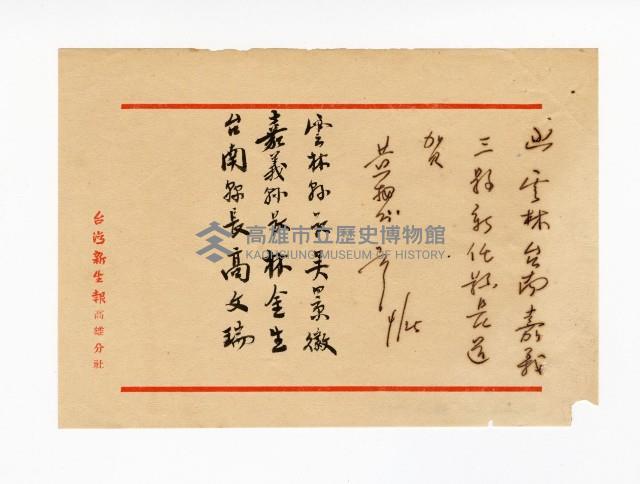 函雲林台南嘉義
三縣新任縣長道
賀
4/25
雲林縣長吳景徽
嘉義縣長林金生
台南縣長高文瑞
台灣新生報高雄分社
高雄市立歷史博物館
KAOHSIUNG MUSEUM OF HISTORY